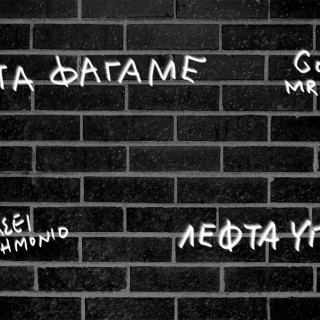 ΤΑ ΦΑΓΑΜΕ
GO
MR
ΣΕΙ
ΗΜΟΝΙΟ
ΛΕΦΤΑ